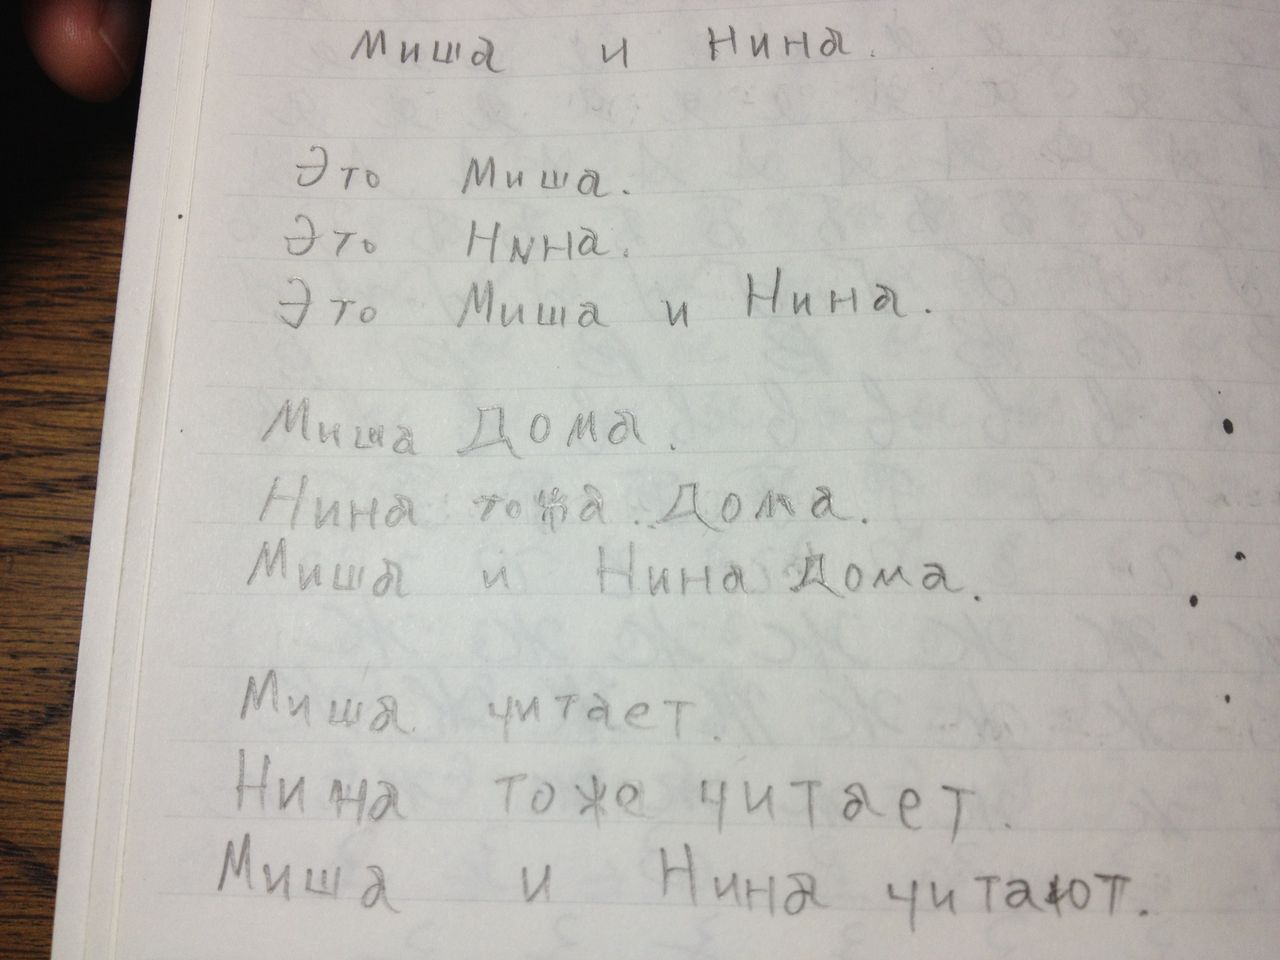 Миша и Нина.
Это Миша.
Это Нина.
Это Миша и Нина.
Миша Дома.
Нина тожа Дома.
Миша и Нина Дома.
Миша читает.
Нина тоже читает.
Миша и Нина читают.